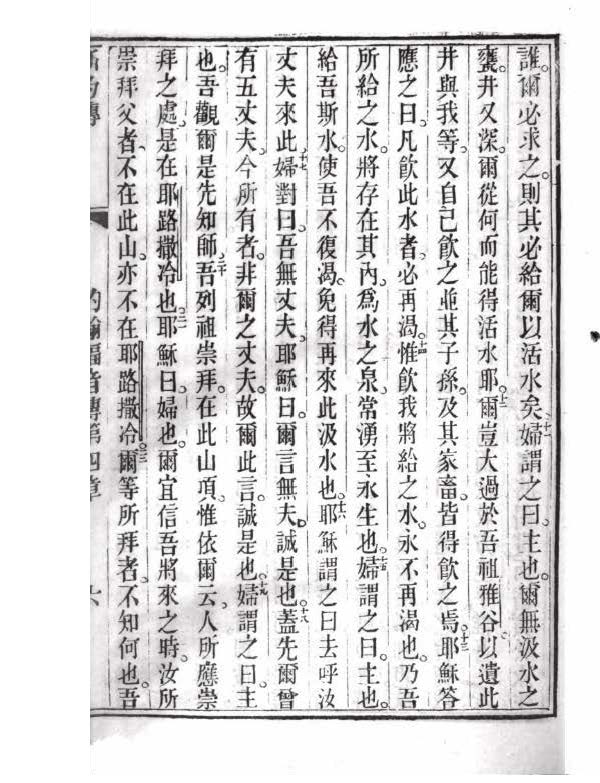 誰。爾必求之。則其必給爾以活水矣。十一婦謂之曰。主也。爾無汲水之
甕。井又深。爾從何而能得活水耶。十二爾豈大過於吾祖雅谷。以遺此
井與我等。又自己飲之並其子孫。及其家畜。皆得飲之焉。十三耶穌答
應之曰。凡飲此水者。必再渴。十四惟飲我將給之水。永不再渴也。乃吾
所給之水。將存在其內。為水之泉。常湧至永生也。十五婦謂之曰。主也。
給吾斯水。使吾不復渴。免得再來此汲水也。十六耶穌謂之曰去呼汝
丈夫來此。十七婦對曰。吾無丈夫。耶穌曰。爾言無夫。誠是也。十八蓋先爾曾
有五丈夫。今所有者。非爾之丈夫。故爾此言。誠是也。十九婦謂之曰。主
也。吾觀爾是先知師。二十吾列祖崇拜。在此山頂。惟依爾云。人所應崇
拜之處。是在耶路撒冷也。二一耶穌曰。婦也。爾宜信吾將來之時。汝所
崇拜父者。不在此山。亦不在耶路撒冷。二二爾等所拜者。不知何也。吾
約翰福音傳第四章 六